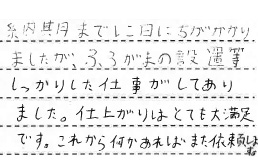 納期までに日にちがかかり
ましたが、ふろがまの設置等
しっかりした仕事がしてあり
ました。仕上がりはとても大満足
です。これから何かあればまた依頼します